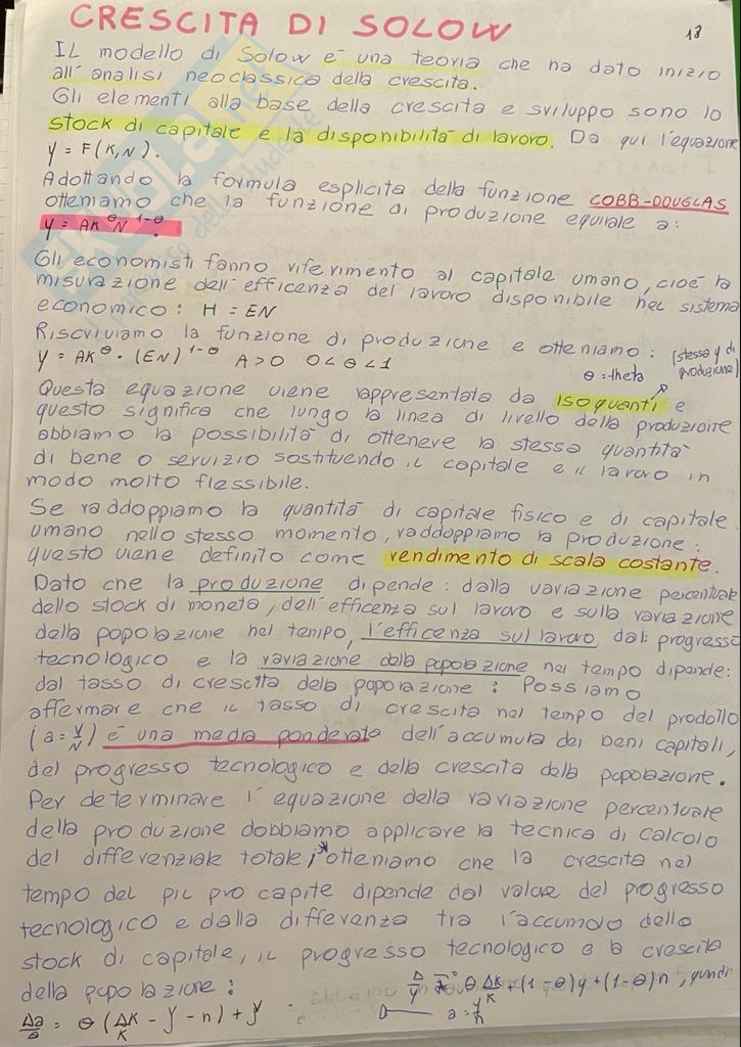 CRESCITA DI SOLOW
13
IL modello di Solow è una teoria che ha dato inizio
all'analisi neoclassica della crescita.
Gli elementi alla base della crescita e sviluppo sono lo
stock di capitale e la disponibilità di lavoro. Da qui l'equazione
y = F(K,N).
Adottando la formula esplicita della funzione COBB-DOUGLAS
otteniamo che la funzione di produzione equivale a:
y = AK^θ N^1-θ.
Gli economisti fanno riferimento al capitale umano, cioè la
misurazione dell'efficenza del lavoro disponibile nel sistema
economico: H = EN
Riscriviamo la funzione di produzione e otteniamo:
y = AK^θ · (EN)^1-θ A>0 0<θ<1
θ = theta
(stessa y di
produzione)
Questa equazione viene rappresentata da isoquanti e
questo significa che lungo la linea di livello della produzione
abbiamo la possibilità di ottenere la stessa quantità
di bene o servizio sostituendo il capitale e il lavoro in
modo molto flessibile.
Se raddoppiamo la quantità di capitale fisico e di capitale
umano nello stesso momento, raddoppiamo la produzione:
questo viene definito come rendimento di scala costante.
Dato che la produzione dipende: dalla variazione percentuale
dello stock di moneta, dell'efficenza sul lavoro e sulla variazione
della popolazione nel tempo, l'efficenza sul lavoro dal progresso
tecnologico e la variazione della popolazione nel tempo dipende:
dal tasso di crescita della popolazione: Possiamo
affermare che il tasso di crescita nel tempo del prodotto
(a = y/N) è una media ponderata dell'accumulo dei beni capitali,
del progresso tecnologico e della crescita della popolazione.
Per determinare l'equazione della variazione percentuale
della produzione dobbiamo applicare la tecnica di calcolo
del differenziale totale;* otteniamo che la crescita nel
tempo del PIL pro capite dipende dal valore del progresso
tecnologico e dalla differenza tra l'accumulo dello
stock di capitale, il progresso tecnologico e la crescita
della popolazione:
θ ΔK/K + (1-θ)y + (1-θ)n, quindi
Δa/a = θ (ΔK/K - y - n) + y
a = y/n